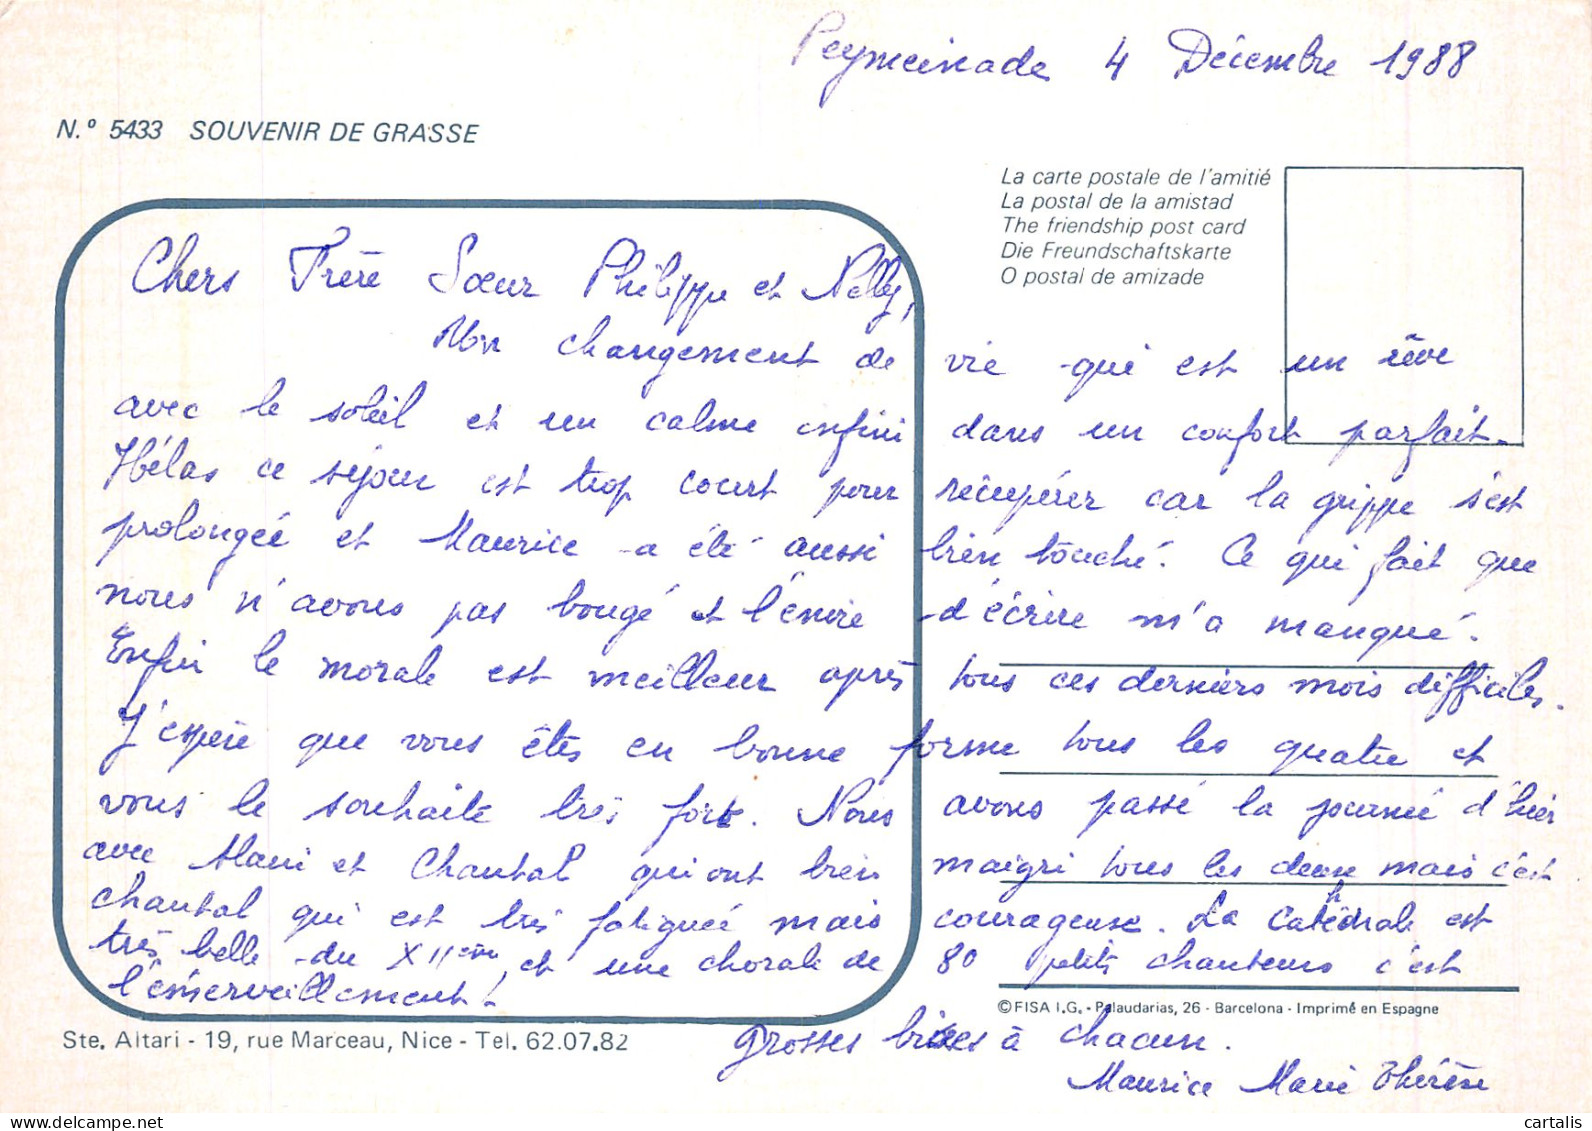 Peymeinade 4 Décembre 1988
N.º 5433 SOUVENIR DE GRASSE
La carte postale de l'amitié
La postal de la amistad
The friendship post card
Die Freundschaftskarte
O postal de amizade
Chers Frère Sœur Philippe et Nelly,
Un changement de vie qui est un rêve
avec le soleil et un calme infini dans un confort parfait.
Hélas ce séjour est trop court pour récupérer car la grippe s'est
prolongée et Maurice a été aussi bien touché. Ce qui fait que
nous n'avons pas bougé et l'envie d'écrire m'a manqué.
Enfin le morale est meilleur après tous ces derniers mois difficiles.
J'espère que vous êtes en bonne forme tous les quatre et
vous le souhaite très fort. Nous avons passé la journée d'hier
avec Alain et Chantal qui ont bien maigri tous les deux mais c'est
chantal qui est très fatiguée mais courageuse. La Cathédrale est
très belle du XIIème et une chorale de 80 petits chanteurs c'est
l'émerveillement !
©FISA I.G. - Palaudarias, 26 - Barcelona - Imprimé en Espagne
Ste. Altari - 19, rue Marceau, Nice - Tel. 62.07.82
grosses bises à chacun.
Maurice Marie Thérèse
cartalis